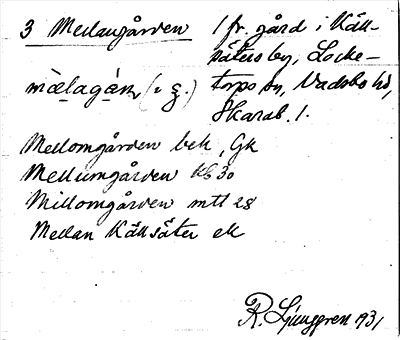 3 Mellangården 1 fr. gård i Käll-
säters by, Locke-
mälagán, (v g.) torps sn, Vadsbo hd,
Skarab. l.
Mellomgården bek, Gk
Mellumgården Kb 30
Millomgården mtl 28
Mellan Källsäter ek
R. Ljunggren 1931